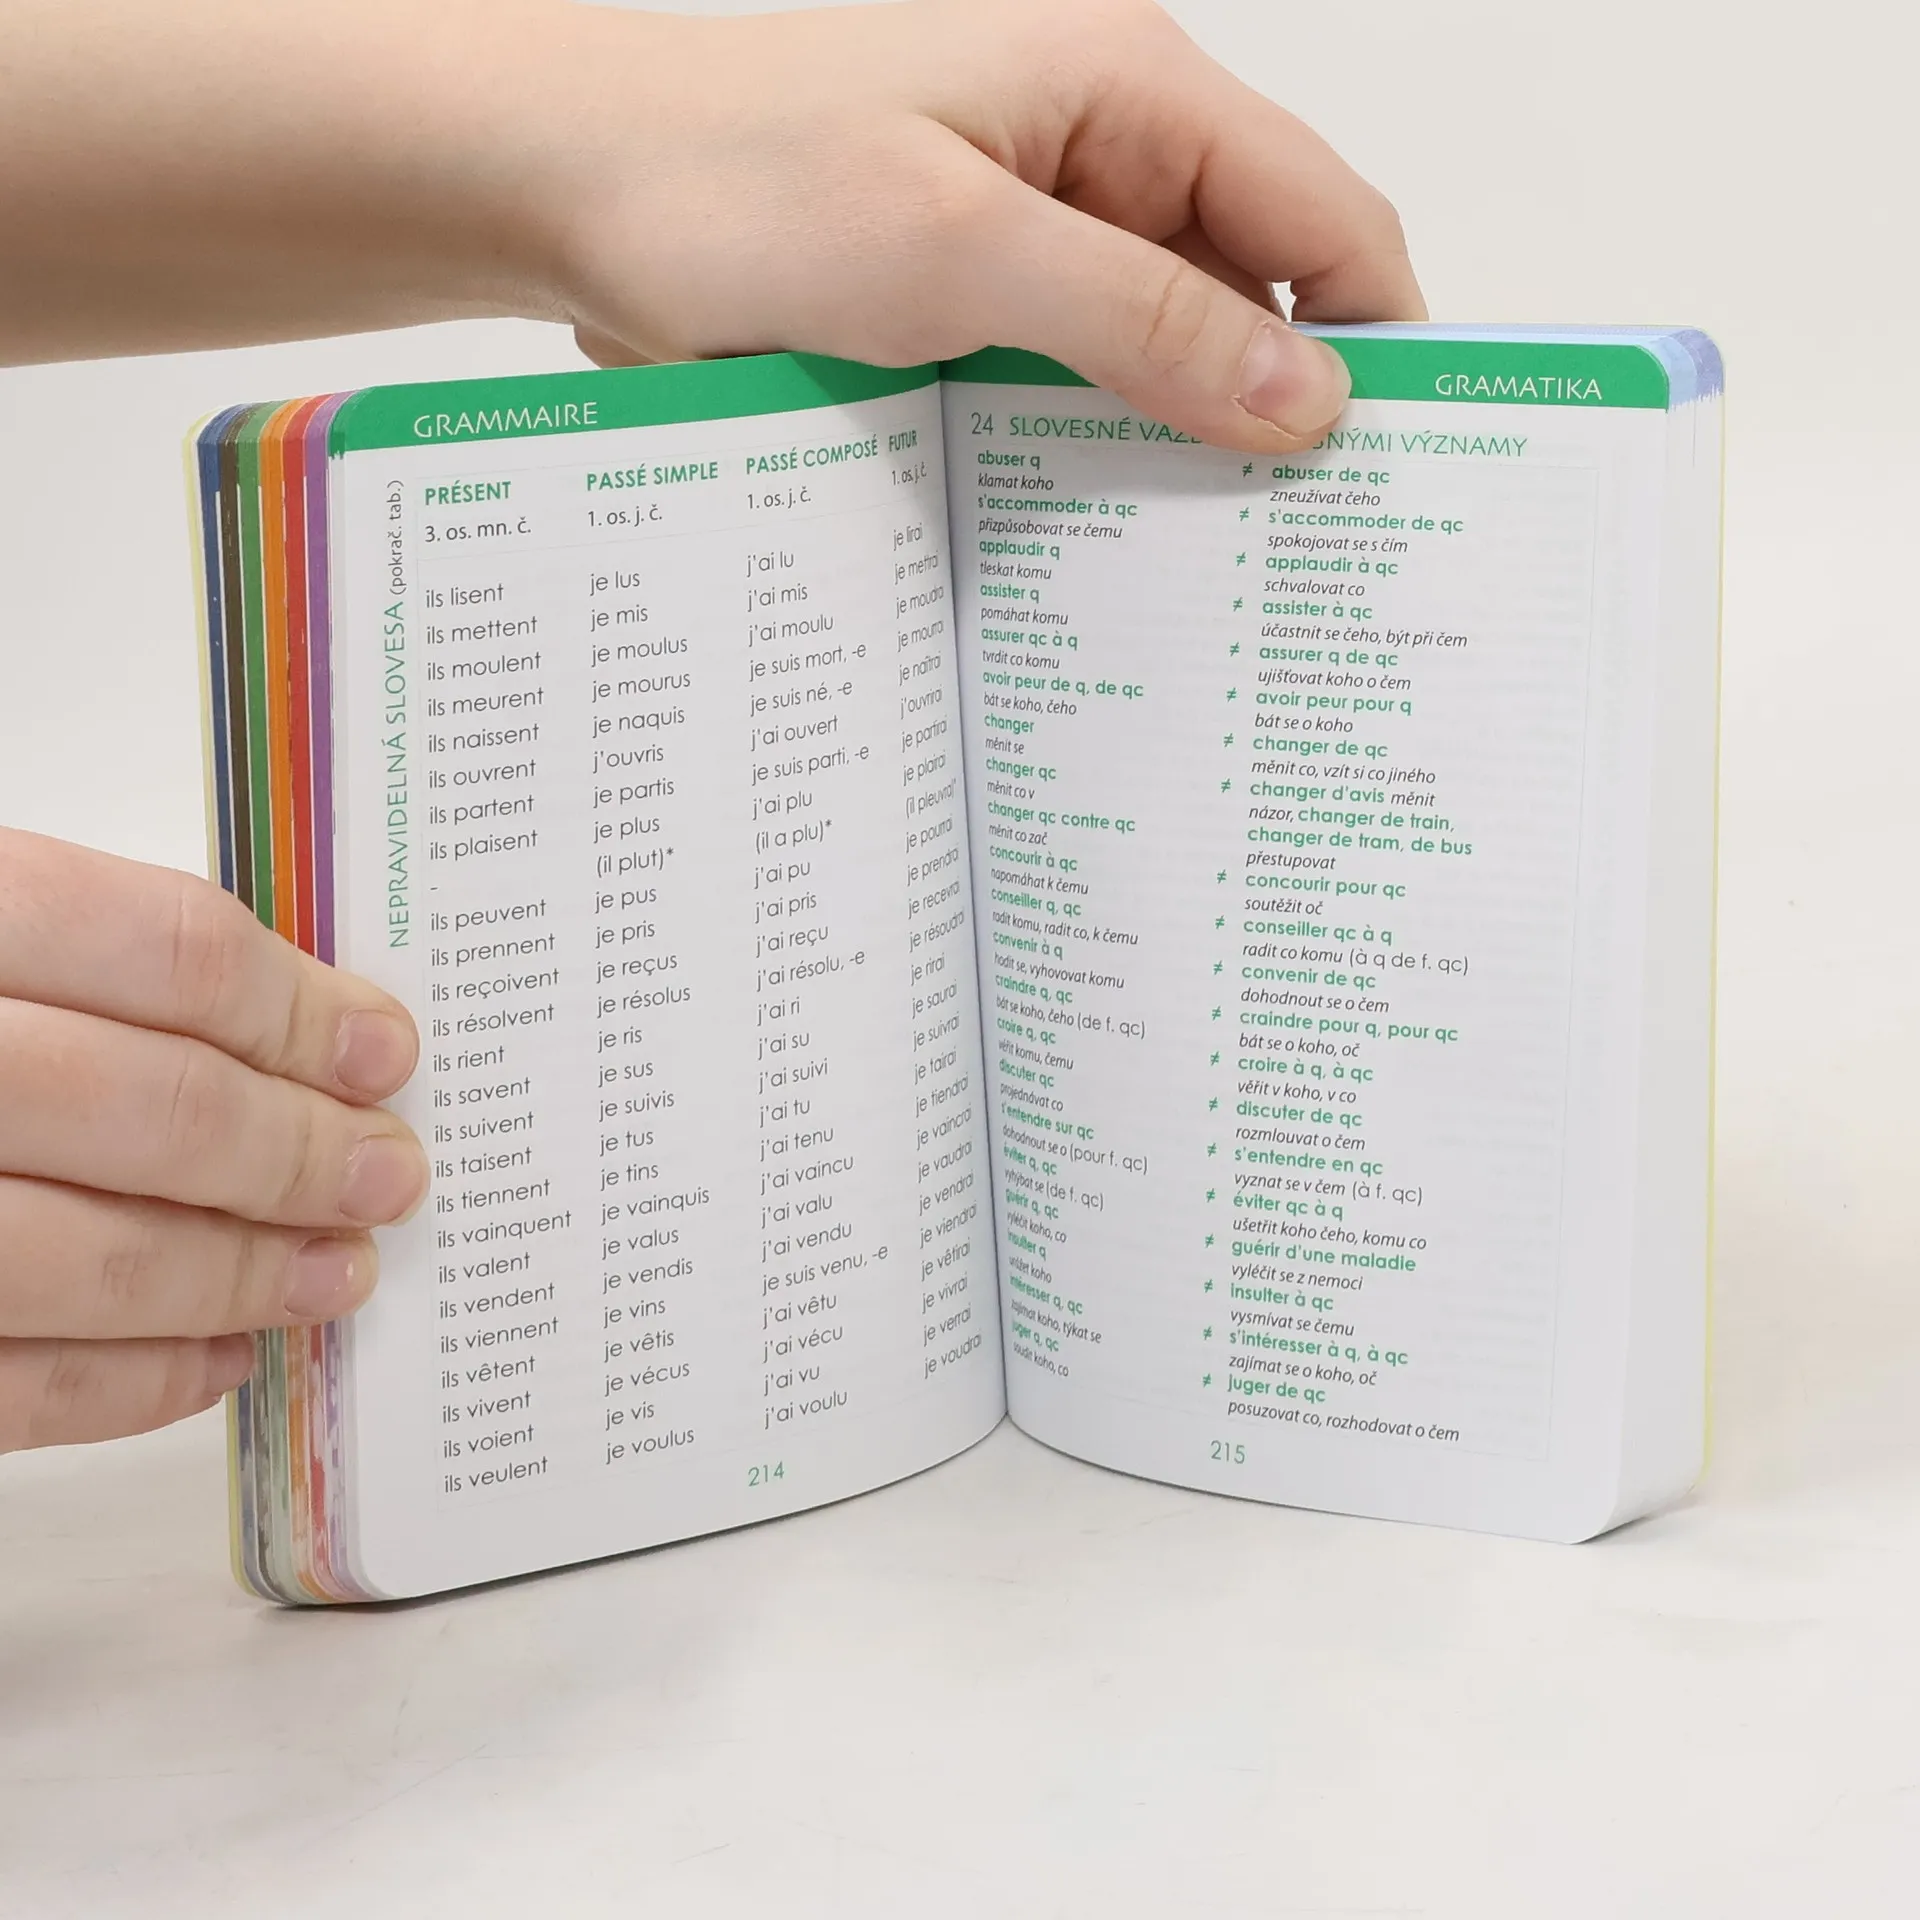 GRAMMAIRE
NEPRAVIDELNÁ SLOVESA (pokrač. tab.)
PRÉSENT PASSÉ SIMPLE PASSÉ COMPOSÉ FUTUR
3. os. mn. č. 1. os. j. č. 1. os. j. č. 1. os. j. č.
ils lisent je lus j'ai lu je lirai
ils mettent je mis j'ai mis je mettrai
ils moulent je moulus j'ai moulu je moudrai
ils meurent je mourus je suis mort, -e je mourrai
ils naissent je naquis je suis né, -e je naîtrai
ils ouvrent j'ouvris j'ai ouvert j'ouvrirai
ils partent je partis je suis parti, -e je partirai
ils plaisent je plus j'ai plu je plairai
- (il plut)* (il a plu)* (il pleuvra)*
ils peuvent je pus j'ai pu je pourrai
ils prennent je pris j'ai pris je prendrai
ils reçoivent je reçus j'ai reçu je recevrai
ils résolvent je résolus j'ai résolu, -e je résoudrai
ils rient je ris j'ai ri je rirai
ils savent je sus j'ai su je saurai
ils suivent je suivis j'ai suivi je suivrai
ils taisent je tus j'ai tu je tairai
ils tiennent je tins j'ai tenu je tiendrai
ils vainquent je vainquis j'ai vaincu je vaincrai
ils valent je valus j'ai valu je vaudrai
ils vendent je vendis j'ai vendu je vendrai
ils viennent je vins je suis venu, -e je viendrai
ils vêtent je vêtis j'ai vêtu je vêtirai
ils vivent je vécus j'ai vécu je vivrai
ils voient je vis j'ai vu je verrai
ils veulent je voulus j'ai voulu je voudrai
214
GRAMATIKA
24 SLOVESNÉ VÝZNAMY
abuser q ≠ abuser de qc
klamat koho zneužívat čeho
s'accommoder à qc ≠ s'accommoder de qc
přizpůsobovat se čemu spokojovat se s čím
applaudir q ≠ applaudir à qc
tleskat komu schvalovat co
assister q ≠ assister à qc
pomáhat komu účastnit se čeho, být při čem
assurer qc à q ≠ assurer q de qc
tvrdit co komu ujišťovat koho o čem
avoir peur de q, de qc ≠ avoir peur pour q
bát se koho, čeho bát se o koho
changer ≠ changer de qc
měnit se měnit co, vzít si co jiného
changer qc ≠ changer d'avis měnit
měnit co v názor, changer de train,
changer qc contre qc changer de tram, de bus
měnit co zač přestupovat
concourir à qc ≠ concourir pour qc
napomáhat k čemu soutěžit oč
conseiller q, qc ≠ conseiller qc à q
radit komu, radit co, k čemu radit co komu (à q de f. qc)
convenir à q ≠ convenir de qc
hodit se, vyhovovat komu dohodnout se o čem
craindre q, qc ≠ craindre pour q, pour qc
bát se koho, čeho (de f. qc) bát se o koho, oč
croire q, qc ≠ croire à q, à qc
věřit komu, čemu věřit v koho, v co
discuter qc ≠ discuter de qc
projednávat co rozmlouvat o čem
s'entendre sur qc ≠ s'entendre en qc
dohodnout se o (pour f. qc) vyznat se v čem (à f. qc)
éviter q, qc ≠ éviter qc à q
vyhýbat se (de f. qc) ušetřit koho čeho, komu co
guérir q, qc ≠ guérir d'une maladie
vyléčit koho, co vyléčit se z nemoci
insulter q ≠ insulter à qc
urážet koho vysmívat se čemu
intéresser q, qc ≠ s'intéresser à q, à qc
zajímat koho, týkat se zajímat se o koho, oč
juger q, qc ≠ juger de qc
soudit koho, co posuzovat co, rozhodovat o čem
215